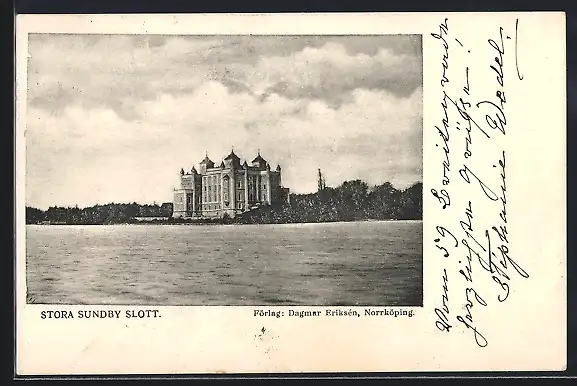 STORA SUNDBY SLOTT.
Förlag: Dagmar Eriksén, Norrköping.
Vom 59 Breitengrade
herzlichste Grüsse!
Stephanie Wedel.